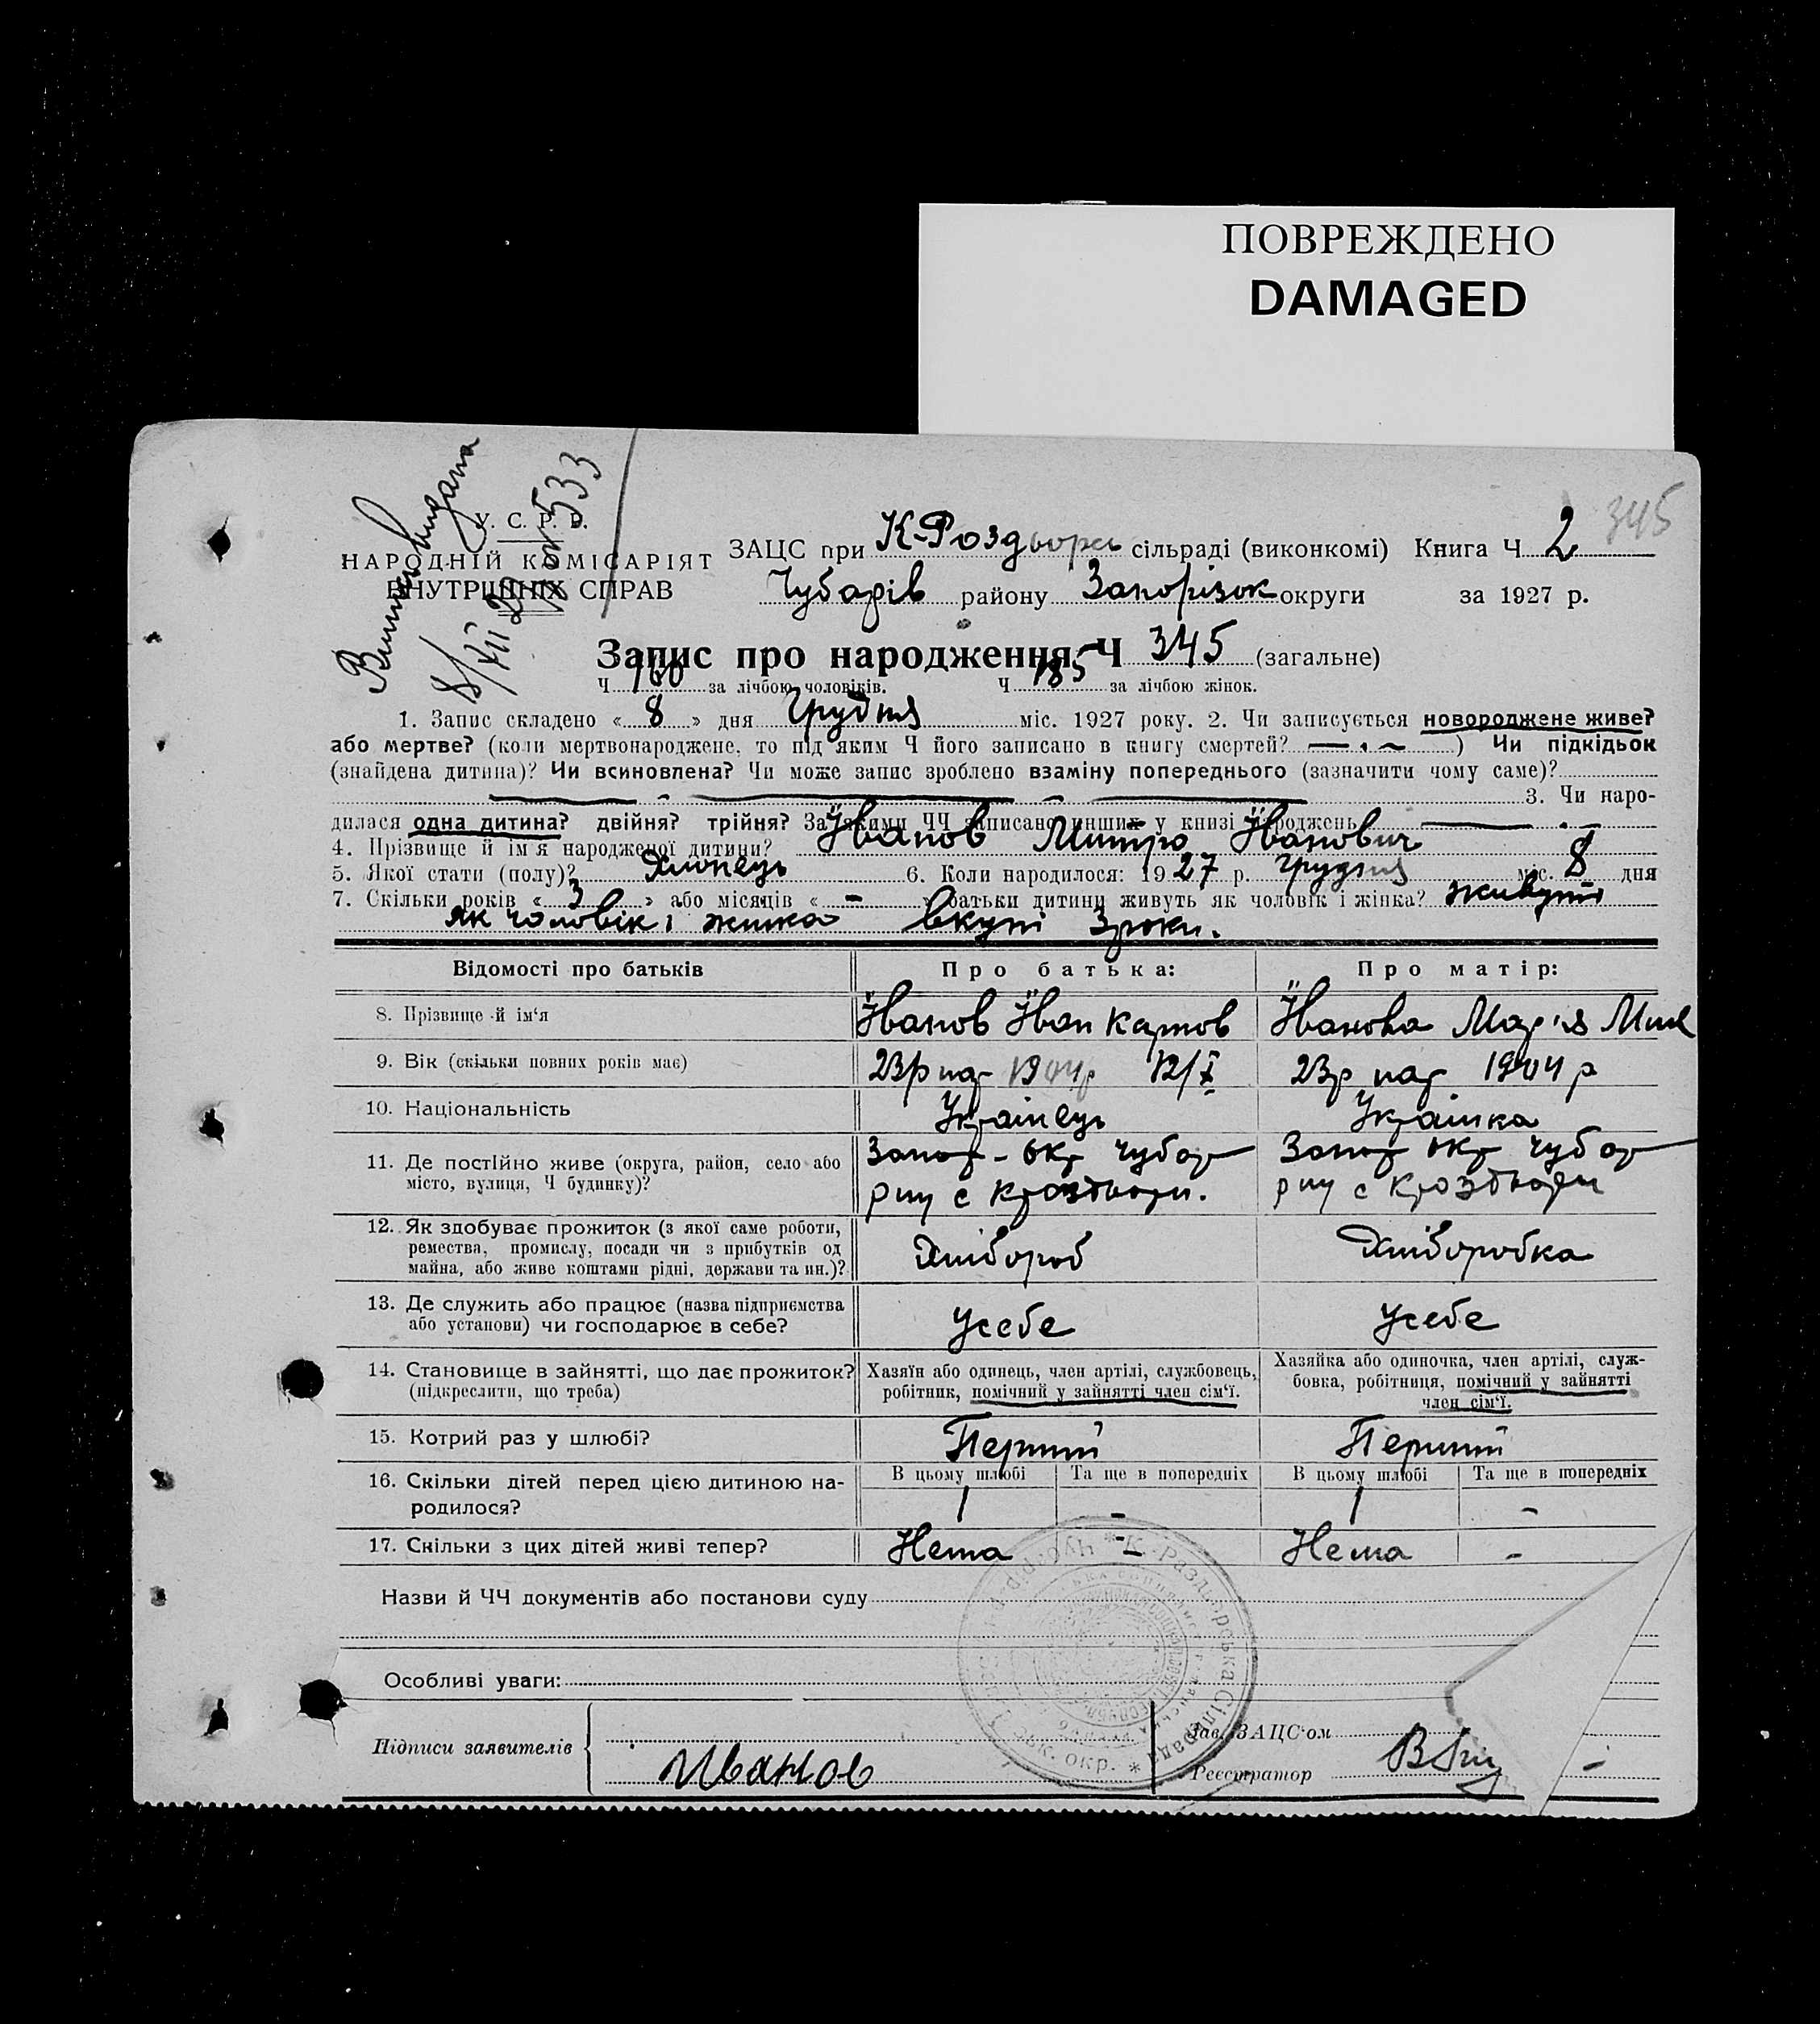 ПОВРЕЖДЕНО
DAMAGED
345
Випись видана
8/XII 27 № 533
У. С. Р. Р.
НАРОДНІЙ КОМІСАРІЯТ
ВНУТРІШНІХ СПРАВ
ЗАЦС при К-Роздори сільраді (виконкомі) Книга Ч 2
Чубарів району Запорізок округи за 1927 р.
Запис про народження Ч 345 (загальне)
Ч 160 за лічбою чоловіків. Ч 185 за лічбою жінок.
1. Запис складено « 8 » дня Грудня міс. 1927 року. 2. Чи записується новороджене живе?
або мертве? (коли мертвонароджене, то під яким Ч його записано в книгу смертей? — . ~ ) Чи підкідьок
(знайдена дитина)? Чи всиновлена? Чи може запис зроблено взаміну попереднього (зазначити чому саме)?
3. Чи наро-
дилася одна дитина? двійня? трійня? За якими ЧЧ записано инших у книзі народжень
4. Прізвище й ім'я народженої дитини? Іванов Митро Іванович
5. Якої стати (полу)? Хлопець 6. Коли народилося: 1927 р. Грудня міс. 8 дня
7. Скільки років « 3 » або місяців « - » батьки дитини живуть як чоловік і жінка? живуть
як чоловік і жинка вкупі 3 роки.
Відомості про батьків Про батька: Про матір:
8. Прізвище й ім'я Іванов Іван Карпов Іванова Мар'я Мих
9. Вік (скільки повних років має) 23р нар 1904р 12/X 23р нар 1904 р
10. Національність Українець Українка
11. Де постійно живе (округа, район, село або Запор-окр Чубар Запор окр Чубар
місто, вулиця, Ч будинку)? рну с Кроздори. рну с Кроздори
12. Як здобуває прожиток (з якої саме роботи,
ремества, промислу, посади чи з прибутків од Хлібороб Хліборобка
майна, або живе коштами рідні, держави та ин.)?
13. Де служить або працює (назва підприємства Усебе Усебе
або установи) чи господарює в себе?
14. Становище в зайнятті, що дає прожиток? Хазяїн або одинець, член артілі, службовець, Хазяйка або одиночка, член артілі, служ-
(підкреслити, що треба) робітник, помічний у зайнятті член сім'ї. бовка, робітниця, помічний у зайнятті
член сім'ї.
15. Котрий раз у шлюбі? Перший Перший
16. Скільки дітей перед цією дитиною на- В цьому шлюбі Та ще в попередніх В цьому шлюбі Та ще в попередніх
родилося? 1 - 1 -
17. Скільки з цих дітей живі тепер? Нема - Нема -
Назви й ЧЧ документів або постанови суду
Особливі уваги:
К.-Раздорська Сільрада
Підписи заявителів Иванов
Зав. ЗАЦС'ом
Реєстратор